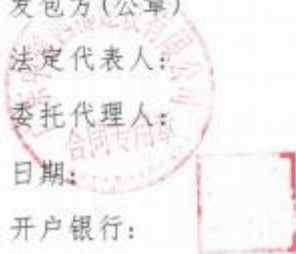 发包方(公章)
法定代表人:
委托代理人:
日期:
开户银行:
合同专用章